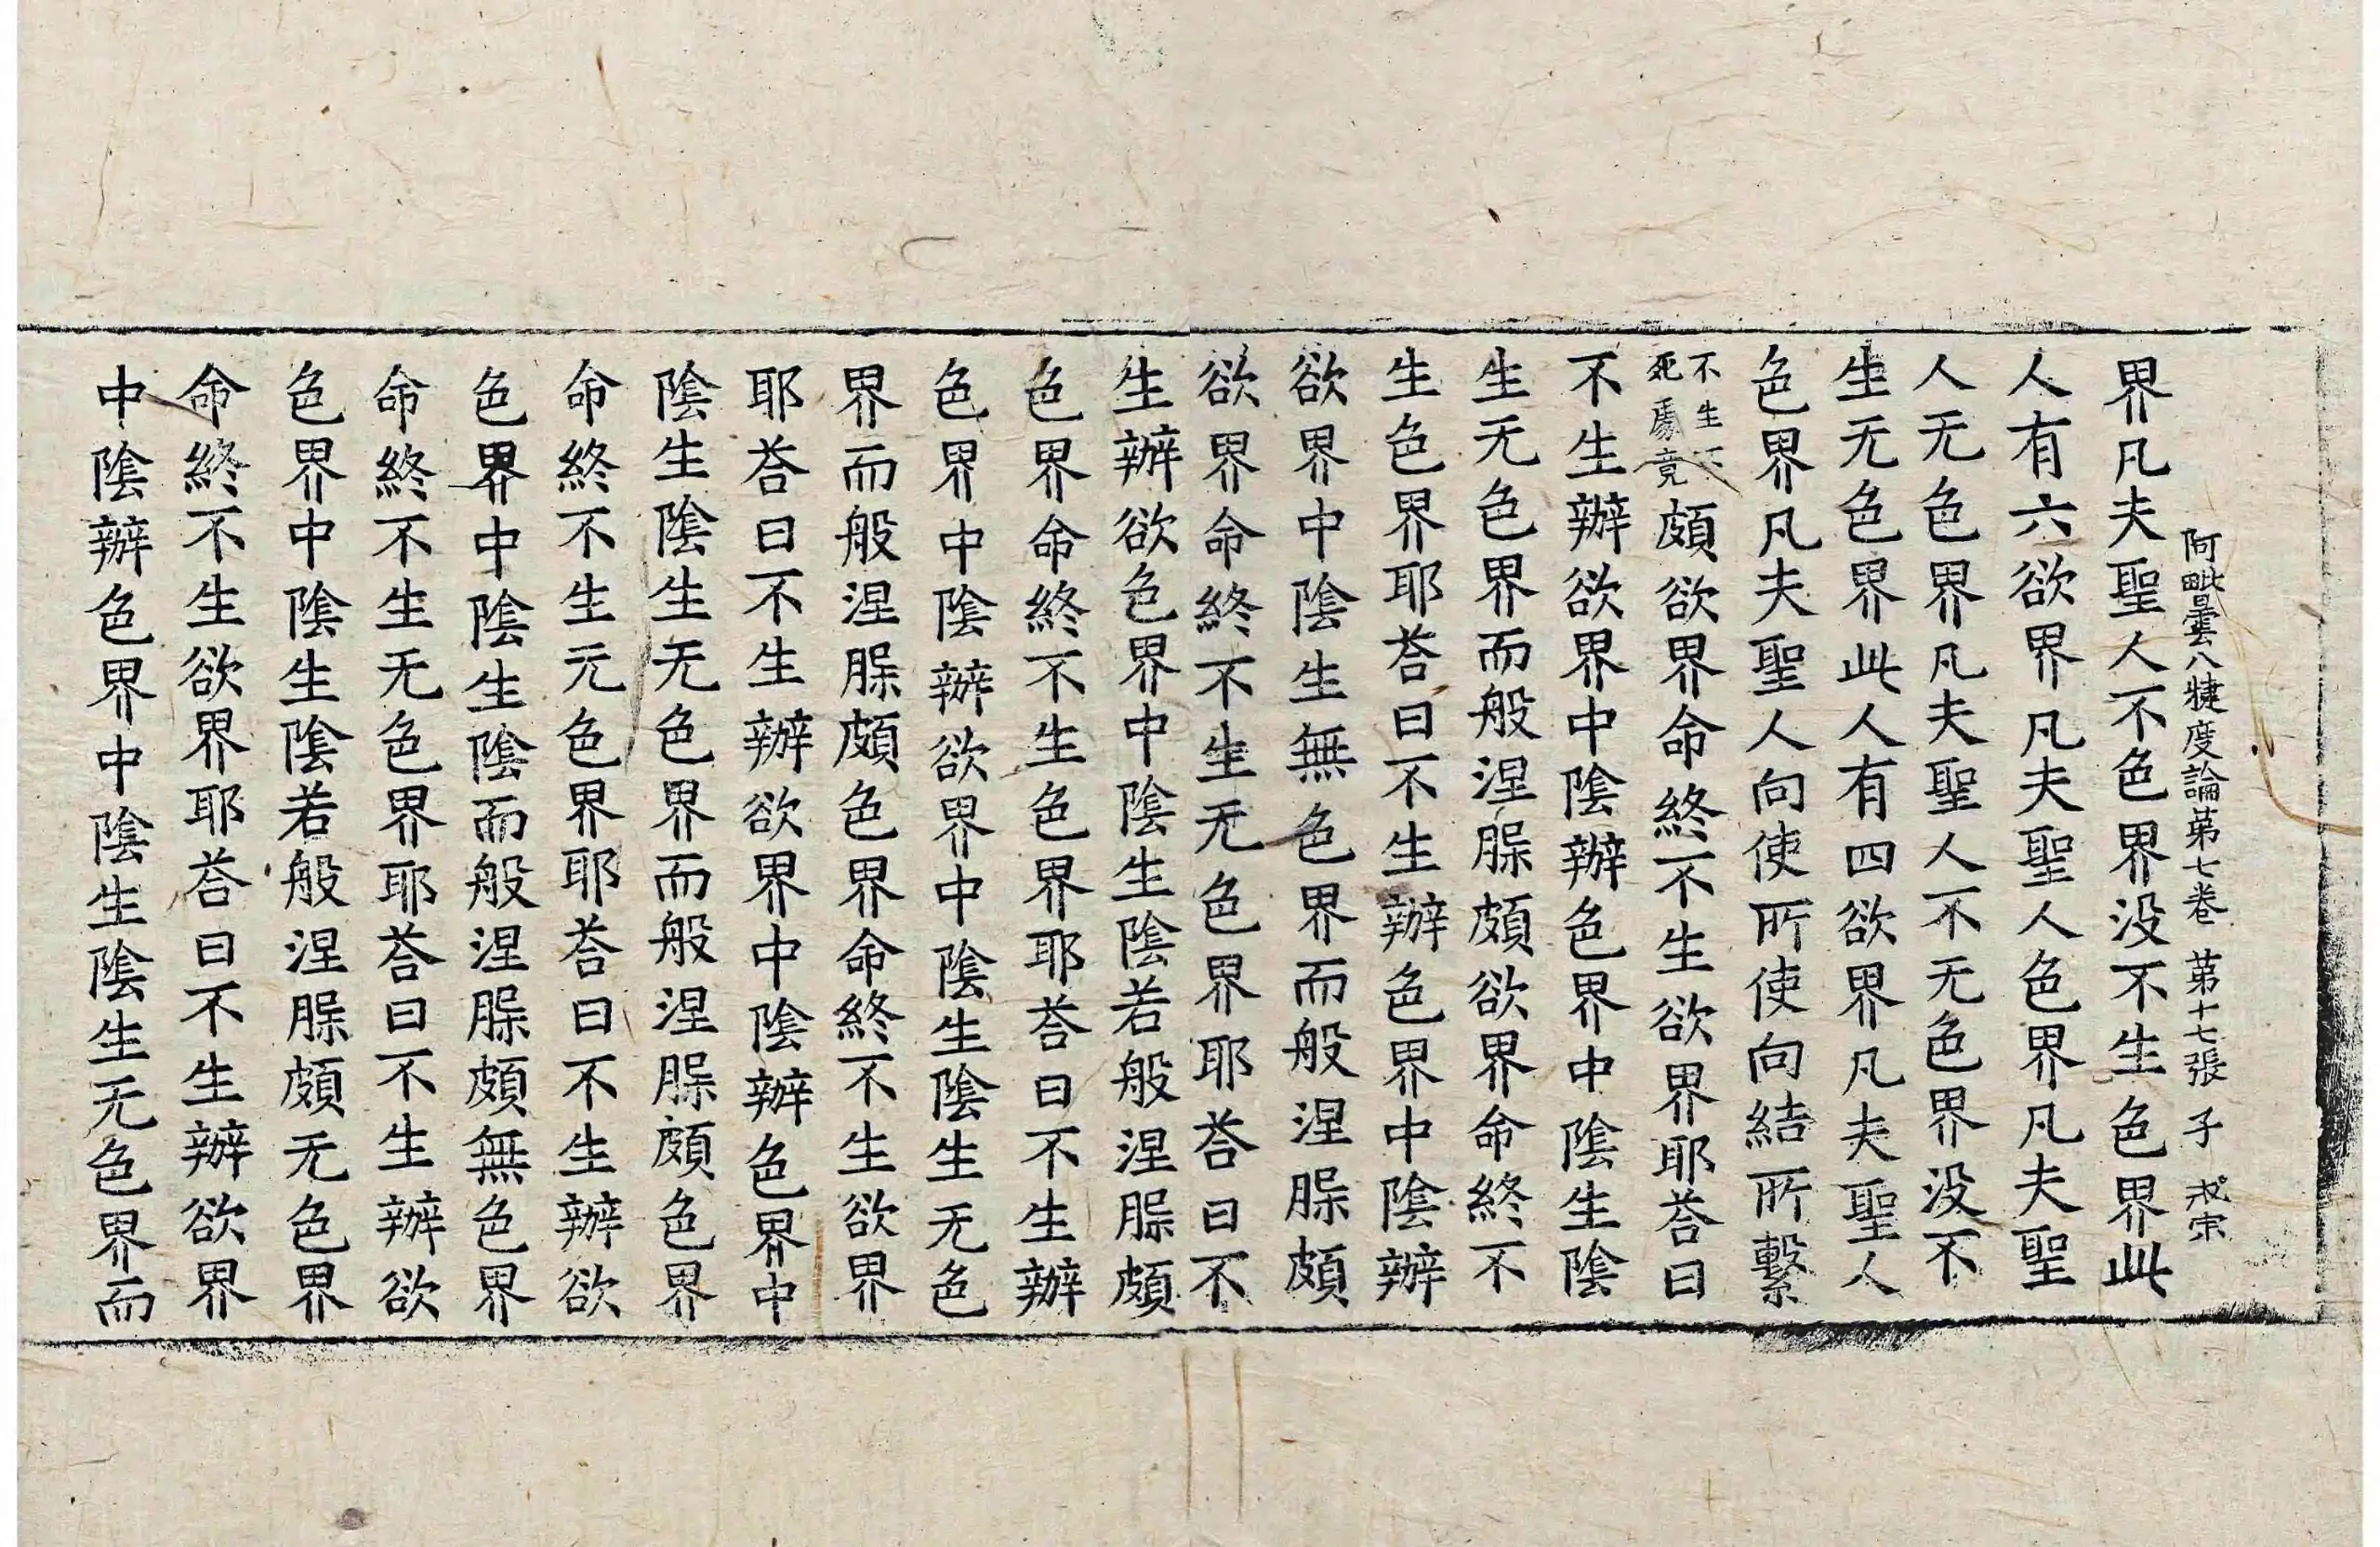 阿毗曇八犍度論第七卷 第十七張 子
界凡夫聖人不色界没不生色界此
人有六欲界凡夫聖人色界凡夫聖
人无色界凡夫聖人不无色界没不
生无色界此人有四欲界凡夫聖人
色界凡夫聖人向使所使向結所繫
不生不死處竟頗欲界命終不生欲界耶荅曰
不生辦欲界中陰辦色界中陰生陰
生无色界而般涅槃頗欲界命終不
生色界耶荅曰不生辦色界中陰辦
欲界中陰生無色界而般涅槃頗
欲界命終不生无色界耶荅曰不
生辦欲色界中陰生陰若般涅槃頗
色界命終不生色界耶荅曰不生辦
色界中陰辦欲界中陰生陰生无色
界而般涅槃頗色界命終不生欲界
耶荅曰不生辦欲界中陰辦色界中
陰生陰生无色界而般涅槃頗色界
命終不生无色界耶荅曰不生辦欲
色界中陰生陰而般涅槃頗無色界
命終不生无色界耶荅曰不生辦欲
色界中陰生陰若般涅槃頗无色界
命終不生欲界耶荅曰不生辦欲界
中陰辦色界中陰生陰生无色界而